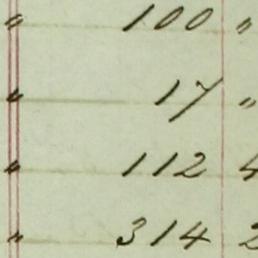 " 100 "
" 17 "
" 112 4
" 314 2